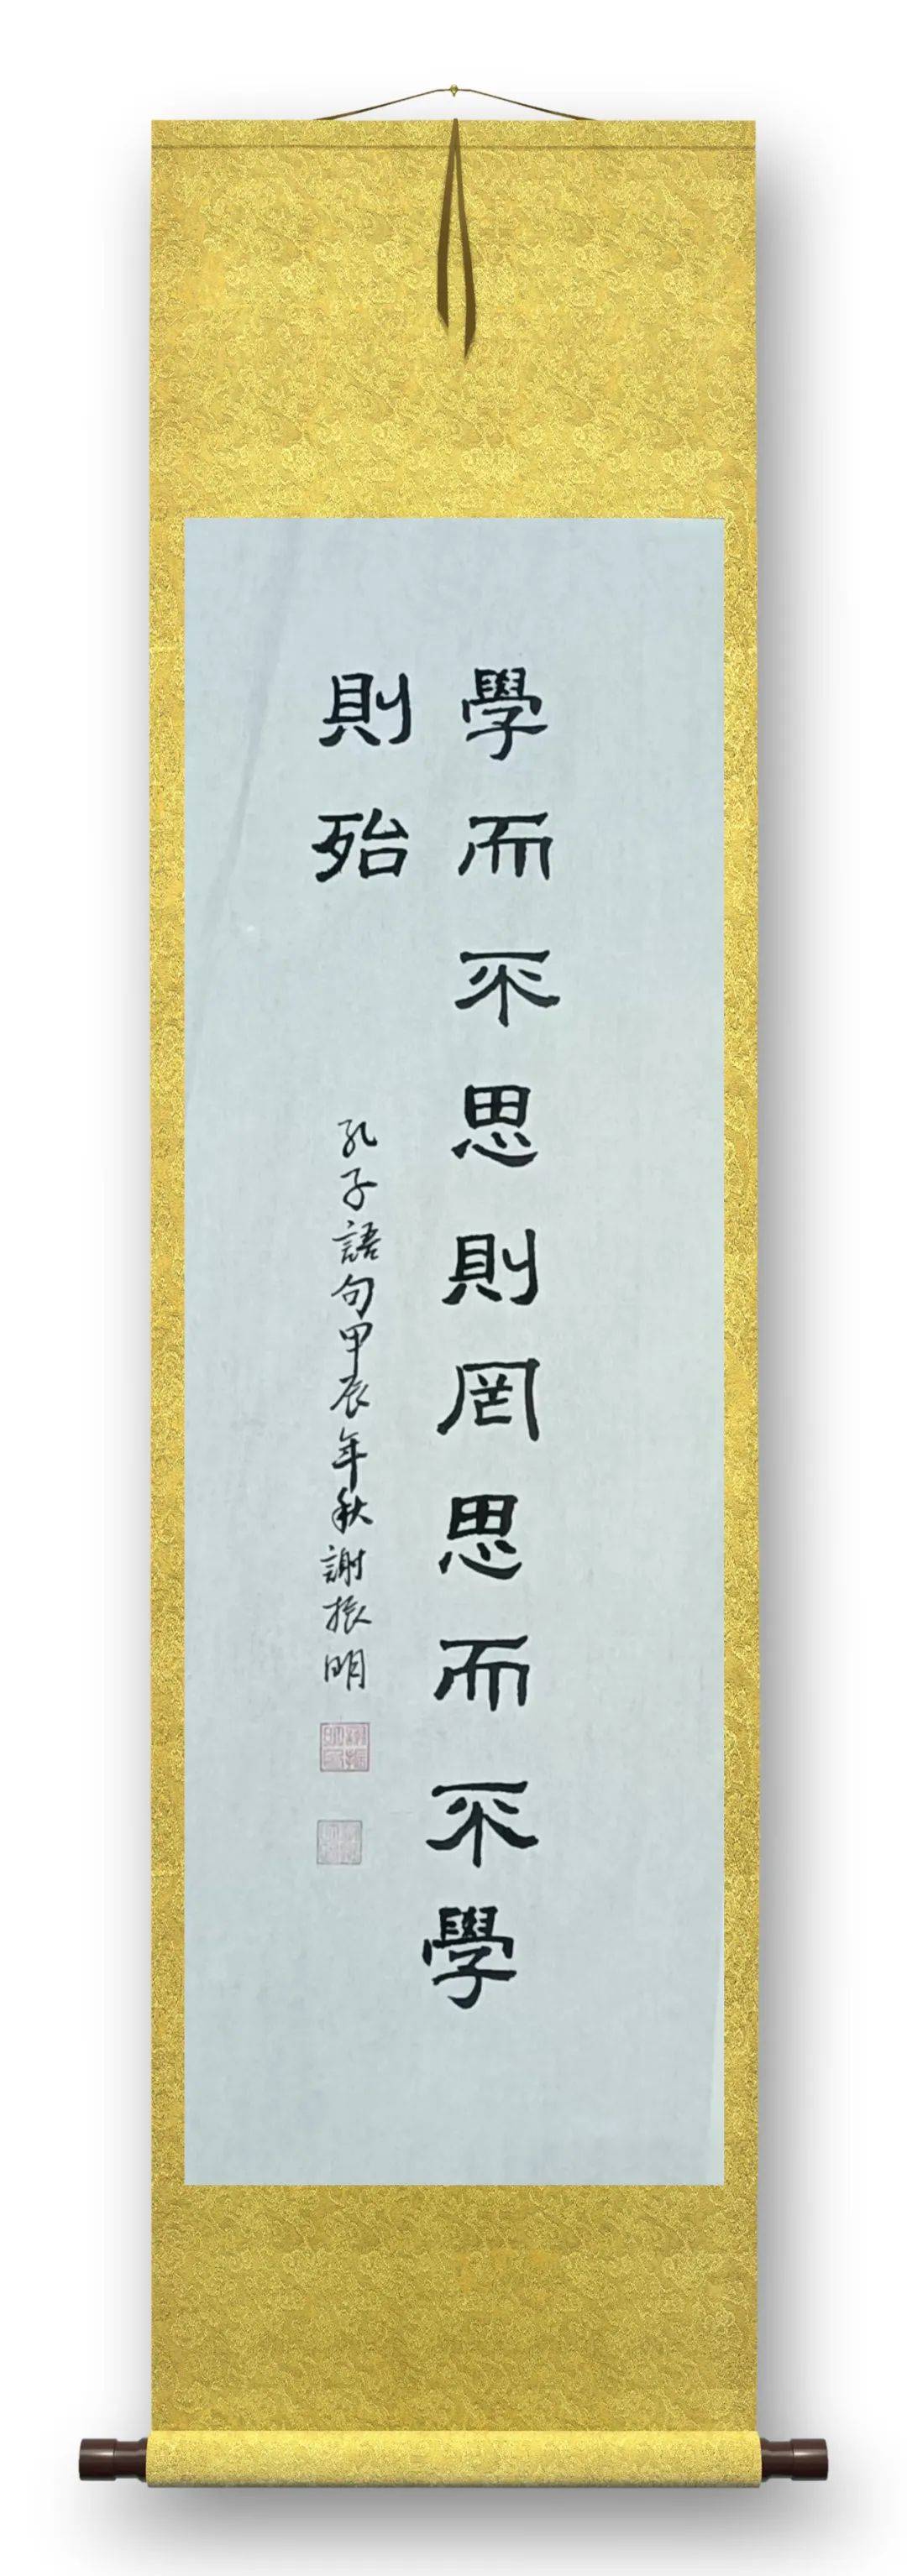 學而不思則罔思而不學
則殆
孔子語句甲辰年秋謝振明